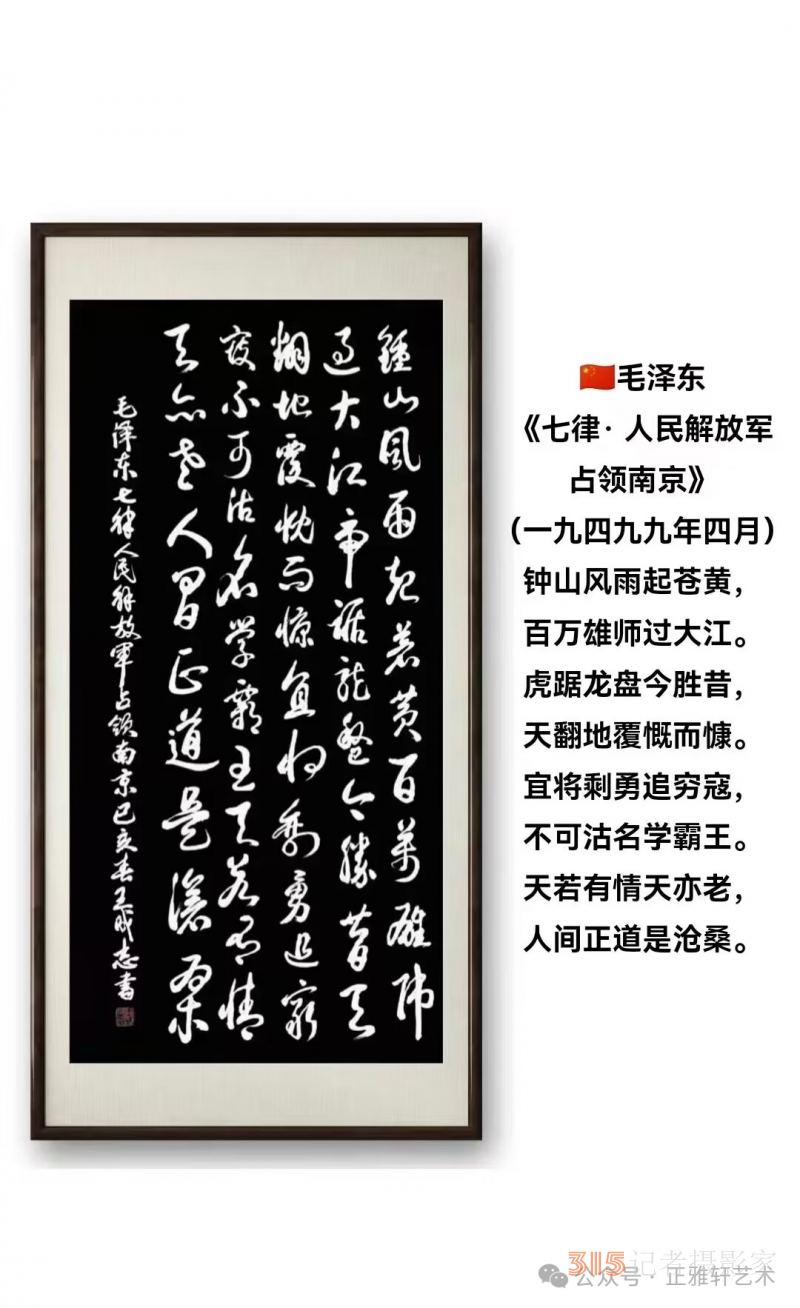 鍾山風雨起蒼黄百萬雄師
過大江虎踞龍盤今勝昔天
翻地覆慨而慷宜将剩勇追窮
寇不可沽名學霸王天若有情
天亦老人間正道是滄桑
毛泽东七律人民解放軍占领南京己亥春王成志書
🇨🇳毛泽东
《七律· 人民解放军
占领南京》
（一九四九九年四月）
钟山风雨起苍黄，
百万雄师过大江。
虎踞龙盘今胜昔，
天翻地覆慨而慷。
宜将剩勇追穷寇，
不可沽名学霸王。
天若有情天亦老，
人间正道是沧桑。
315记者摄影家
公众号 · 正雅轩艺术